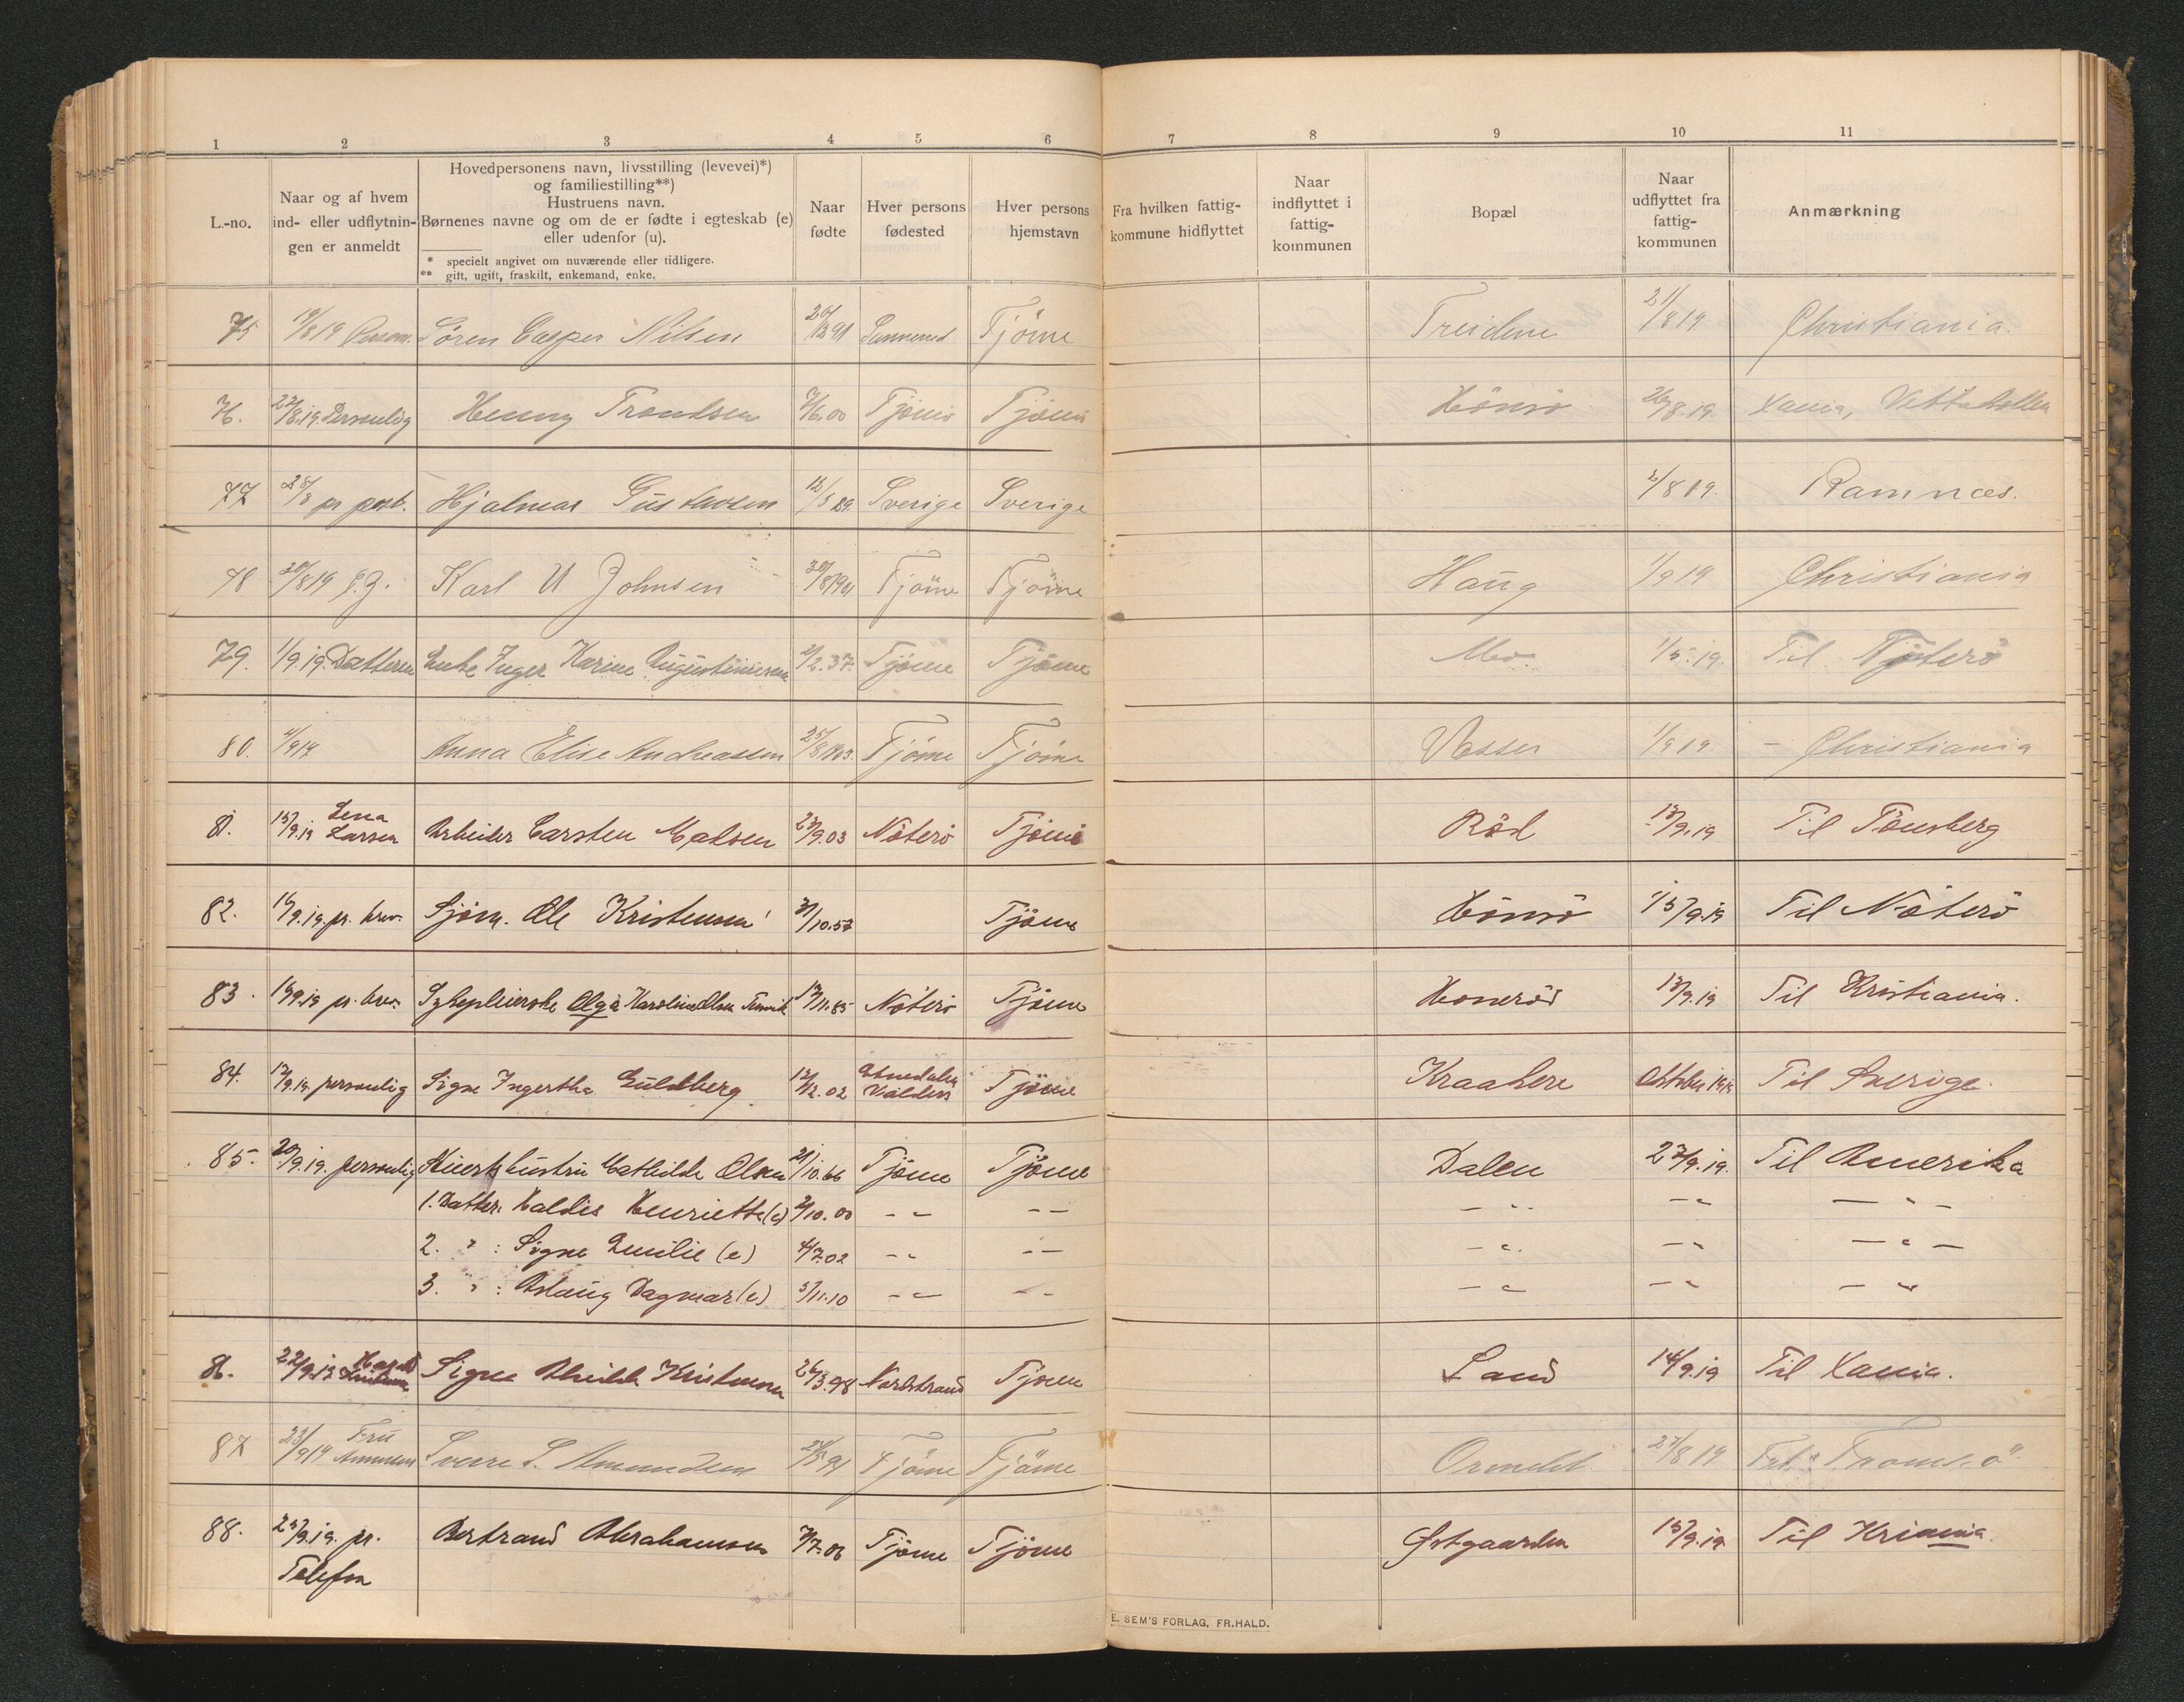 1 2 3 4 5 6 7 8 9 10 11
L.-no.
Naar og af hvem
ind- eller udflytnin-
gen er anmeldt
Hovedpersonens navn, livsstilling (levevei)*)
og familiestilling**)
Hustruens navn.
Børnenes navne og om de er fødte i egteskab (e)
eller udenfor (u).
* specielt angivet om nuværende eller tidligere.
** gift, ugift, fraskilt, enkemand, enke.
Naar
fødte
Hver persons
fødested
Hver persons
hjemstavn
Fra hvilken fattig-
kommune hidflyttet
Naar
indflyttet i
fattig-
kommunen
Bopæl
Naar
udflyttet fra
fattig-
kommunen
Anmærkning
75 19/8 19 Person. Sören Casper Nilsen Sannered Tjöme Treidene 21/8 19 Christiania.
76. 22/8.19. Personlig Henny Trondsen 7/6.00 Tjöme Tjöme Hönsö 26/8.19. Xania, Vettakollen
77 28/8 pr post. Hjalmar Gustavsen Sverige Sverige 2/8 19. Ramnæs.
78 30/8 19 Karl U Johnsen Tjöme Tjöme Haug 1/9 19 Christiania
79. 1/9.19. Datteren Enke Inger Karine Augustinussen 2/2.37. Tjöme Tjöme Mo. 1/5.19. Til Tjöme Nöterö
80. 4/9 19 Anna Elise Andreassen 25/8 1903. Tjöme Tjöme Vasser 1/9 19. - Christiania
81. 15/9.19 Lena
Larsen Arbeider Carsten Matsen 23/9.03 Nöterö Tjöme Röd 13/9.19 Til Tönsberg
82. 16/9.19. pr. brev. Sjöm. Ole Kristensen 31/10.57 Tjöme Hönsö 15/9.19 Til Nöterö
83. 16/9.19 pr. brev. Sykepleierske Olga Karoline Olsen 17/11.85 Nöterö Tjöme Honeröd 13/9.19 Til Kristiania.
84. 17/9.19. personlig Signe Ingertha Guldberg 12/12.02 Etnedalen
Valders Tjöme Kraakere Oktober 1919 Til Sverige.
85. 20/9.19. personlig hustru Mathilde Olsen 21/10.66 Tjöme Tjöme Dalen 27/9.19. Til Amerika
1. Datter: Haldis Henriette (e) 2/10.00 - " - - - " - " - " - - " -
2. " : Signe Emilie (e) 4/7.02 - " - - - " - " - " - - " -
3. " : Aslaug Dagmar (e) 5/11.10 - " - - - " - " - " - "
86. 22/9.19 Signe Alvilde Kristensen 26/3.98 Nordstrand Tjöme Sand 14/9.19 Til Xania.
87 23/9 19 Fru
Amundsen Sverre S. Amundsen Tjöme Tjöme Ormelet 27/8 19 "Tromsö"
88. 25/9.19. pr.
Telefon Bertrand Abrahamsen 7/7.06 Tjöme Tjöme Østgaarden 15/9.19 Til Kriania.
E. SEM'S FORLAG, FR.HALD.